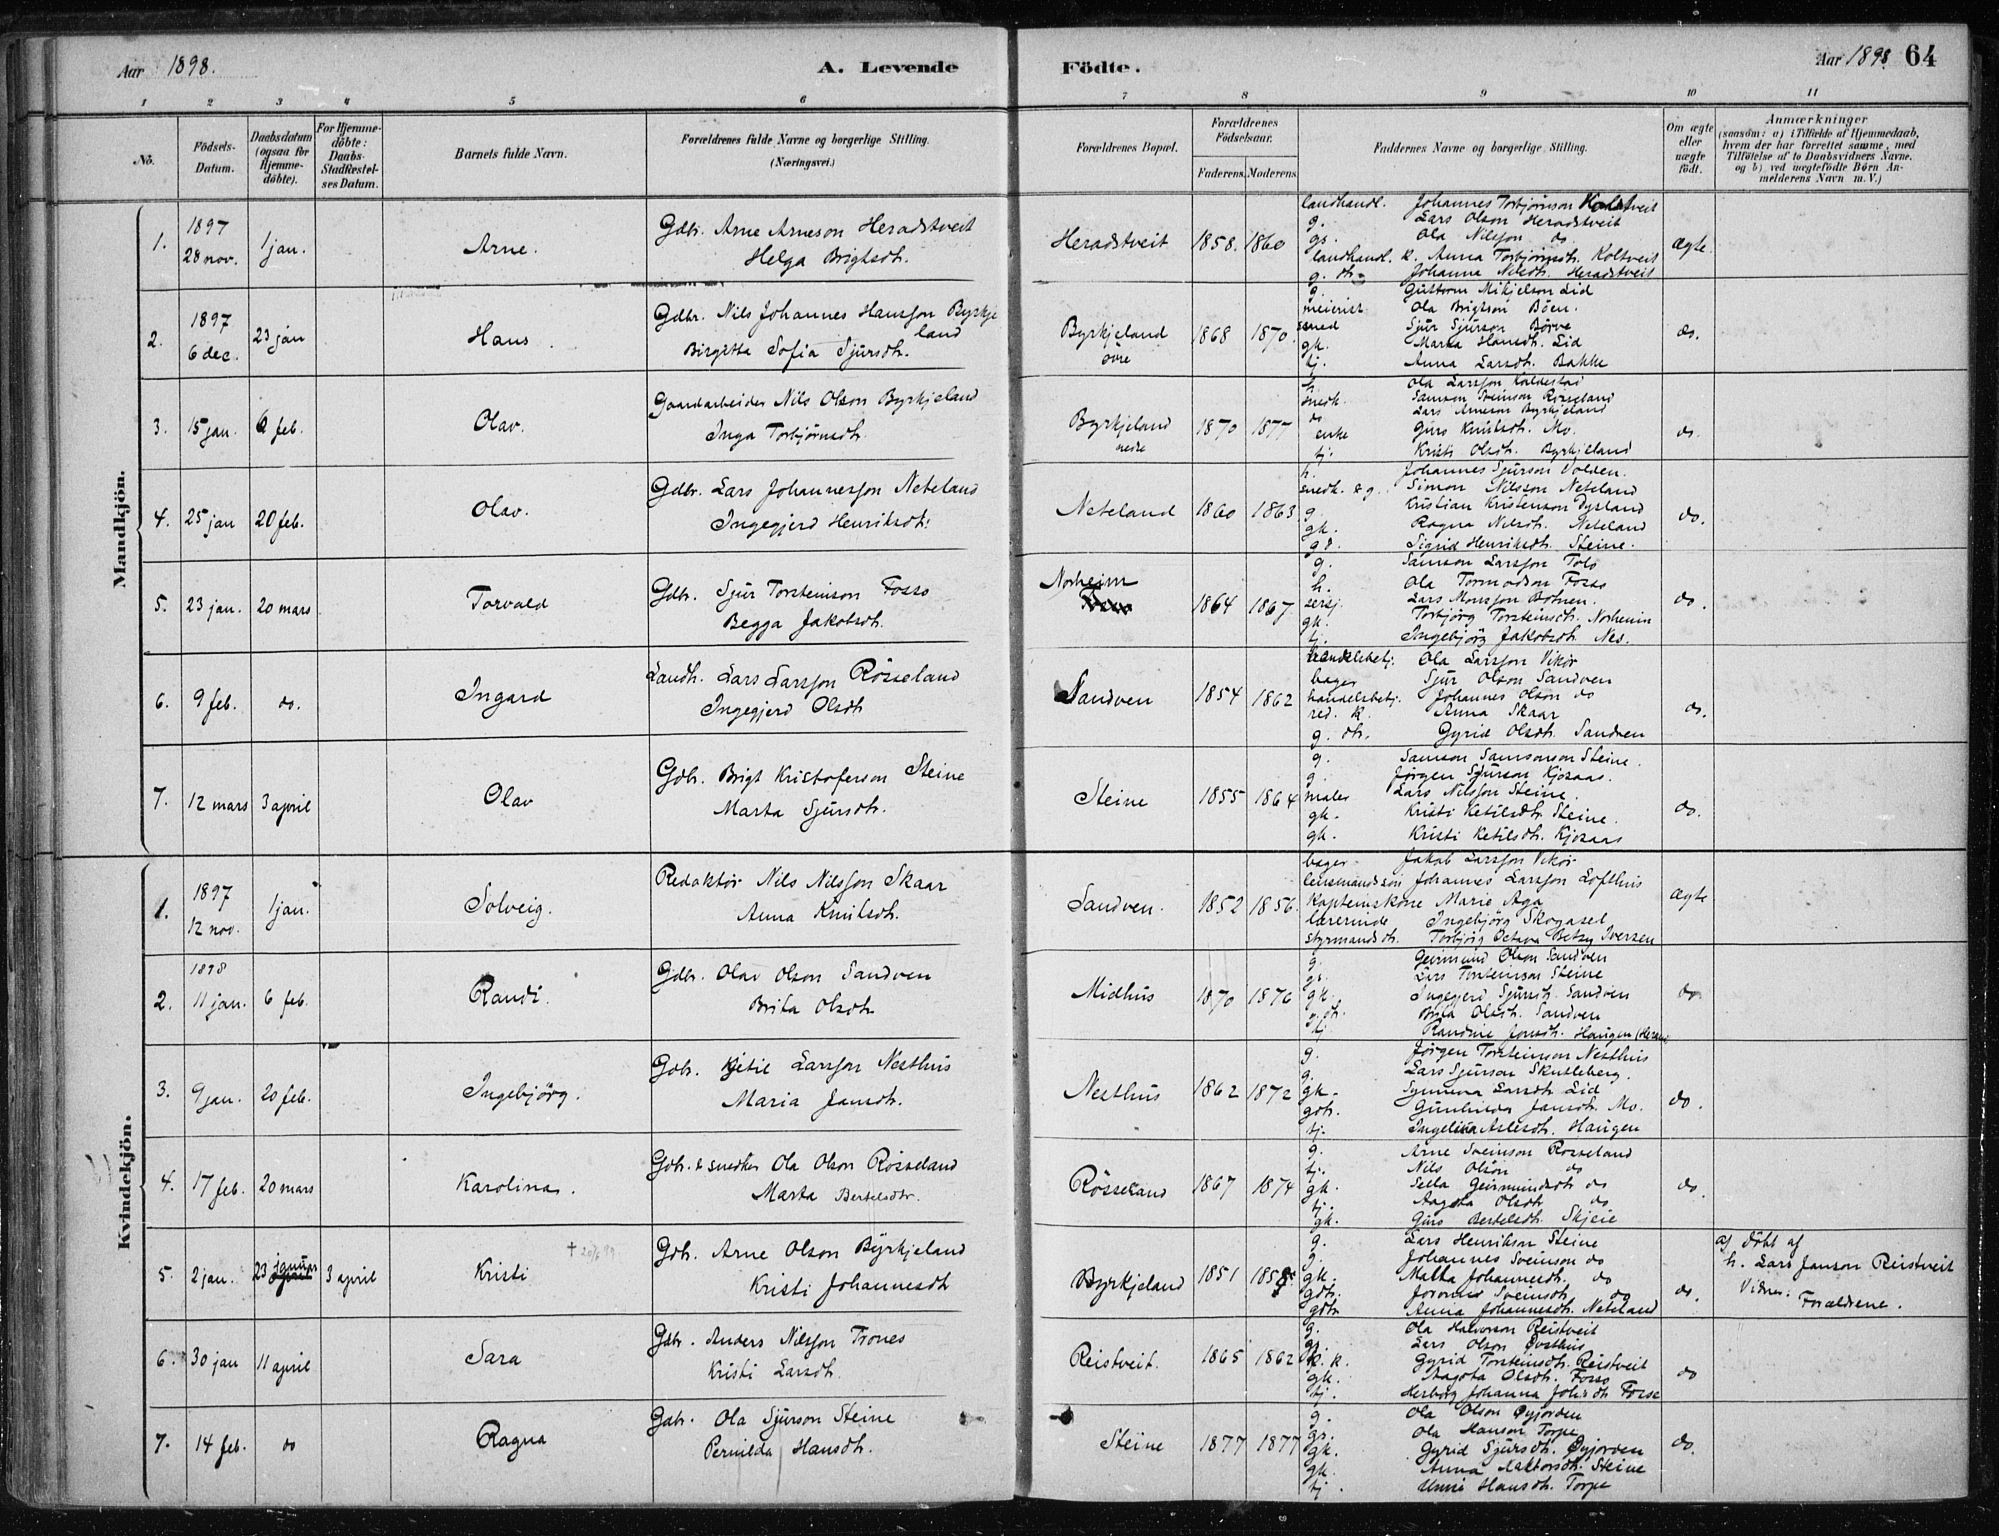 Aar 1898.
A. Levende
Födte.
Aar 1898. 64
1 2 3 4 5 6 7 8 9 10 11
No.
Födsels-Datum.
Daabsdatum (ogsaa for Hjemme-döbte).
For Hjemme-döbte: Daabs-Stadfæstel-ses Datum.
Barnets fulde Navn.
Forældrenes fulde Navne og borgerlige Stilling.
(Næringsvei.)
Forældrenes Bopæl.
Forældrenes Födselsaar.
Faderens. Moderens.
Faddernes Navne og borgerlige Stilling.
Om ægte eller uægte födt.
Anmærkninger
(saasom: a) i Tilfælde af Hjemmedaab,
hvem der har forrettet samme, med
Tilföielse af to Daabsvidners Navne,
og b) ved uægtefödte Börn An-
melderens Navn m. V.)
Mandkjön.
1. 1897 28 nov. 1 jan. Arne.
Gdbr. Arne Arneson Heradstveit
Helga Brigtsdtr.
Heradstveit 1858. 1860 ægte.
landhandl. Johannes Torbjörnson Koltveit
g. Lars Olson Heradstveit
gs. Ola Nilsson do
landhandl. k. Anna Torbjörnsdtr. Koltveit
g. dtr. Johanna Nilsdtr. Heradstveit
2. 1897 6 dec. 23 jan Hans.
Gdbr. Nils Johannes Hansson Byrkje
land
Birgitta Sofia Sjursdtr.
Byrkjeland övre 1868 1870. do.
g. Guttorm Mikjelson Lid
meierist Ola Brigtson Böen.
smed Sjur Sjurson Börve
gk. Marta Hansdtr. Lid
tj. Anna Larsdtr. Bakke
3. 15 jan. 6 feb. Olav.
Gaardarbeider Nils Olson Byrkjeland
Inga Torbjörnsdtr.
Byrkjeland nedre 1870 1877 do.
h. Ola Larsson Kaldestad
snedk. Samson Steinson Röseland
do Lars Arneson Byrkjeland
enke Guro Knutsdtr. Mo.
tj. Kristi Olsdtr. Byrkjeland
4. 25 jan 20 feb. Olav.
Gdbr. Lars Johannesson Neteland
Ingegjerd Henriksdtr.
Neteland 1860 1863. do.
h. Johannes Sjurson Volden.
snedk. & g. Simon Nilsson Neteland
g. Kristian Kristenson Dysland
gk. Ragna Nilsdtr. Neteland
gd. Sigrid Henriksdtr. Steine.
5. 23 jan. 20 mars Torvald
Gdbr. Sjur Torsteinson Fosso
Begga Jakobsdtr.
Norheim 1864 1867 do.
g. Samson Larsson Tolo
h. Ola Tormodson Fosso
sersj. Lars Monsson Botnen.
gk. Torbjörg Torsteinsdtr. Norheim
tj. Ingebjörg Jakobsdtr. Nes.
6. 9 feb. do. Ingard
Landh. Lars Larsson Rösseland
Ingegjerd Olsdtr
Sandven 1854 1862 do.
handelsbetj. Ola Larsson Vikör
bager Sjur Olson Sandven
handelsbetj. Johannes Olson do
red. k. Anna Skaar
g. dtr. Gyrid Olsdtr. Sandven
7. 12 mars 3 april Olav
Gdbr. Brigt Kristoferson Steine
Marta Sjursdtr.
Steine 1855 1864 do.
g. Samson Samsonson Steine.
g. Jörgen Sjurson Kjosaas.
maler Lars Nilsson Steine.
gk. Kristi Ketilsdtr. Steine.
gk. Kristi Ketilsdtr. Kjosaas
Kvindekjön.
1. 1897 12 nov. 1 jan. Solveig.
Redaktör Nils Nilsson Skaar
Anna Knutsdtr.
Sandven. 1852 1856. ægte
bager Jakob Larsson Vikör
lensmandssön Johannes Larsson Lofthus
Kapteinskone Marie Aga
lærerinde Ingebjörg Skogasel
styrmandsdtr. Torbjörg Octava Betzy Iversen
2. 1898 11 jan. 6 feb. Randi.
Gdbr. Olav Olson Sandven
Brita Olsdtr
Midhus 1870 1876 do
g. Geirmund Olson Sandven
gs. Lars Torsteinson Steine
gk. Ingegjerd Sjursdtr. Sandven
g. dtr. Brita Olsdtr. Sandven
tj. Randine Jonsdtr. Haugen
3. 9 jan. 20 feb. Ingebjörg.
Gdbr. Kjetil Larsson Nesthus
Maria Jansdtr.
Nesthus 1862 1872 do.
g. Jörgen Torsteinson Nesthus
g. Lars Sjurson Skutleberg.
gk. Synneva Larsdtr Lid
gdtr. Gunhilda Jansdtr. Mo.
tj. Haugen
4. 17 feb. 20 mars Karolina.
Gdbr. & snedker Ola Olson Rösseland
Marta Bertelsdtr.
Rösseland 1867 1874 do.
g. Arne Sveinson Rosseland
tj. Nils Olson do
gk. Sella Geirmundsdtr do
tj. Aagota Olsdtr do
gk. Guro Bertelsdtr. Skjeie
5. 2 jan. 23 januar 3 april Kristi † 20/6 99
Gdb. Arne Olson Byrkjeland
Kristi Johannesdtr
Byrkjeland 1851 1858 do.
g. Lars Henrikson Steine
g. Johannes Sveinson do
gk. Malta Johannesdtr. do
gdtr. Sveinsdtr do
gdtr Anna Johannesdtr. Neteland
a) döbt af
h. Lars Janson Reistveit
Vidner: Forældrene.
6. 30 jan 11 april Sara
Gdbr. Anders Nilsson Trones
Kristi Larsdtr.
Reistveit. 1865 1862 do
g. Ola Halvorson Reistveit
gs. Lars Olson Östhus
k. k. Gyrid Torsteinsdtr. Reistveit
gk. Aagota Olsdtr. Fosso
tj. Herborg Johanna Johsdtr Fosse
7. 14 feb. do Ragna
Gdbr. Ola Sjurson Steine
Pernilda Hansdtr.
Steine 1877 1877 do.
g. Ola Olson Öyjorden
gs. Ola Hanson Torpe
gk. Gyrid Sjursdtr. Öyjorden
gk. Anna Steine
tj. Hansdtr. Torpe